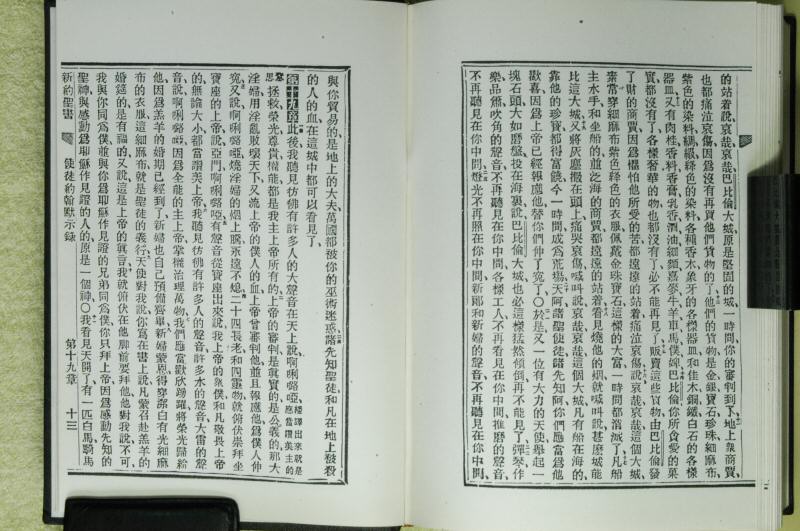 的站着說哀哉哀哉巴比倫大城原是堅固的城一時間你的審判到了地上衆商賈
也都痛泣哀傷因爲沒有再買他們貨物的了他們的貨物是金銀寶石珍珠細麻布
紫色的染料綢緞絳色的染料各種香木象牙的各樣器皿和佳木銅鐵白石的各樣
器皿又有肉桂香料香膏乳香酒油細麵麥牛羊車馬僕婢巴比倫你所貪愛的菓
實都沒有了各樣奢華的物也都沒有了必不能再見了販賣這些貨物由巴比倫發
了財的商賈因爲懼怕他所受的苦都遠遠的站着痛泣哀傷說哀哉哀哉這個大城
素常穿細麻布紫色絳色的衣服佩戴金珠寶石這樣的大富一時間都消滅了凡船
主水手和坐船的並泛海的商賈都遠遠的站着看見燒他的烟就喊叫說甚麼城能
比這大城又將灰塵撒在頭上痛哭哀傷喊叫說哀哉哀哉這個大城凡有船在海的
靠他的珍寶都得富饒今一時間成爲荒場天阿諸聖使徒諸先知阿你們應當爲他
歡喜因爲上帝已經報應他替你們伸了寃了〇於是又一位有大力的天使舉起一
塊石頭大如磨盤投在海裏說巴比倫大城也必這樣猛然傾倒再不能見了彈琴作
樂品簫吹角的聲音不再聽見在你中間各樣工人不再看見在你中間推磨的聲音
不再聽見在你中間燈光不再照在你中間新郎和新婦的聲音不再聽見在你中間
與你貿易的是地上的大夫萬國都被你的巫術迷惑諸先知聖徒和凡在地上被殺
的人的血在這城中都可以看見了
第十九章此後我聽見彷彿有許多人的大聲音在天上說啊唎嚕啞繙譯出來就是應當讚美主的
意思拯救榮光尊貴權能都是我主上帝所有的上帝的審判是眞實的是公義的那大
淫婦用淫亂敗壞天下又流上帝的僕人的血上帝曾審判他並且報應他爲僕人伸
寃又說啊唎嚕啞燒淫婦的烟上騰永遠不熄二十四長老和四靈物就俯伏崇拜坐
寶座的上帝說亞們啊唎嚕啞有聲音從寶座出來說我上帝的衆僕和凡敬畏上帝
的無論大小都當讚美上帝我聽見彷彿有許多人的聲音許多水的聲音大雷的聲
音說啊唎嚕啞因爲全能的主上帝掌權治理萬物我們應當歡欣踴躍將榮光歸給
他因爲羔羊的婚期已經到了新婦也自己預備齊畢新婦蒙恩得穿潔白有光細麻
布的衣服這細麻布就是聖徒的義行天使對我說你寫在書上說凡蒙召赴羔羊的
婚筵的是有福的又說這是上帝的眞言我就俯伏在他脚前要拜他他對我說不可
我與你同爲僕並與你爲耶穌作見證的兄弟同爲僕你只拜上帝因爲感動先知的
聖神與感動爲耶穌作見證的人的原是一個神〇我看見天開了有一匹白馬騎馬
新約聖書 使徒約翰默示錄 第十九章 十三